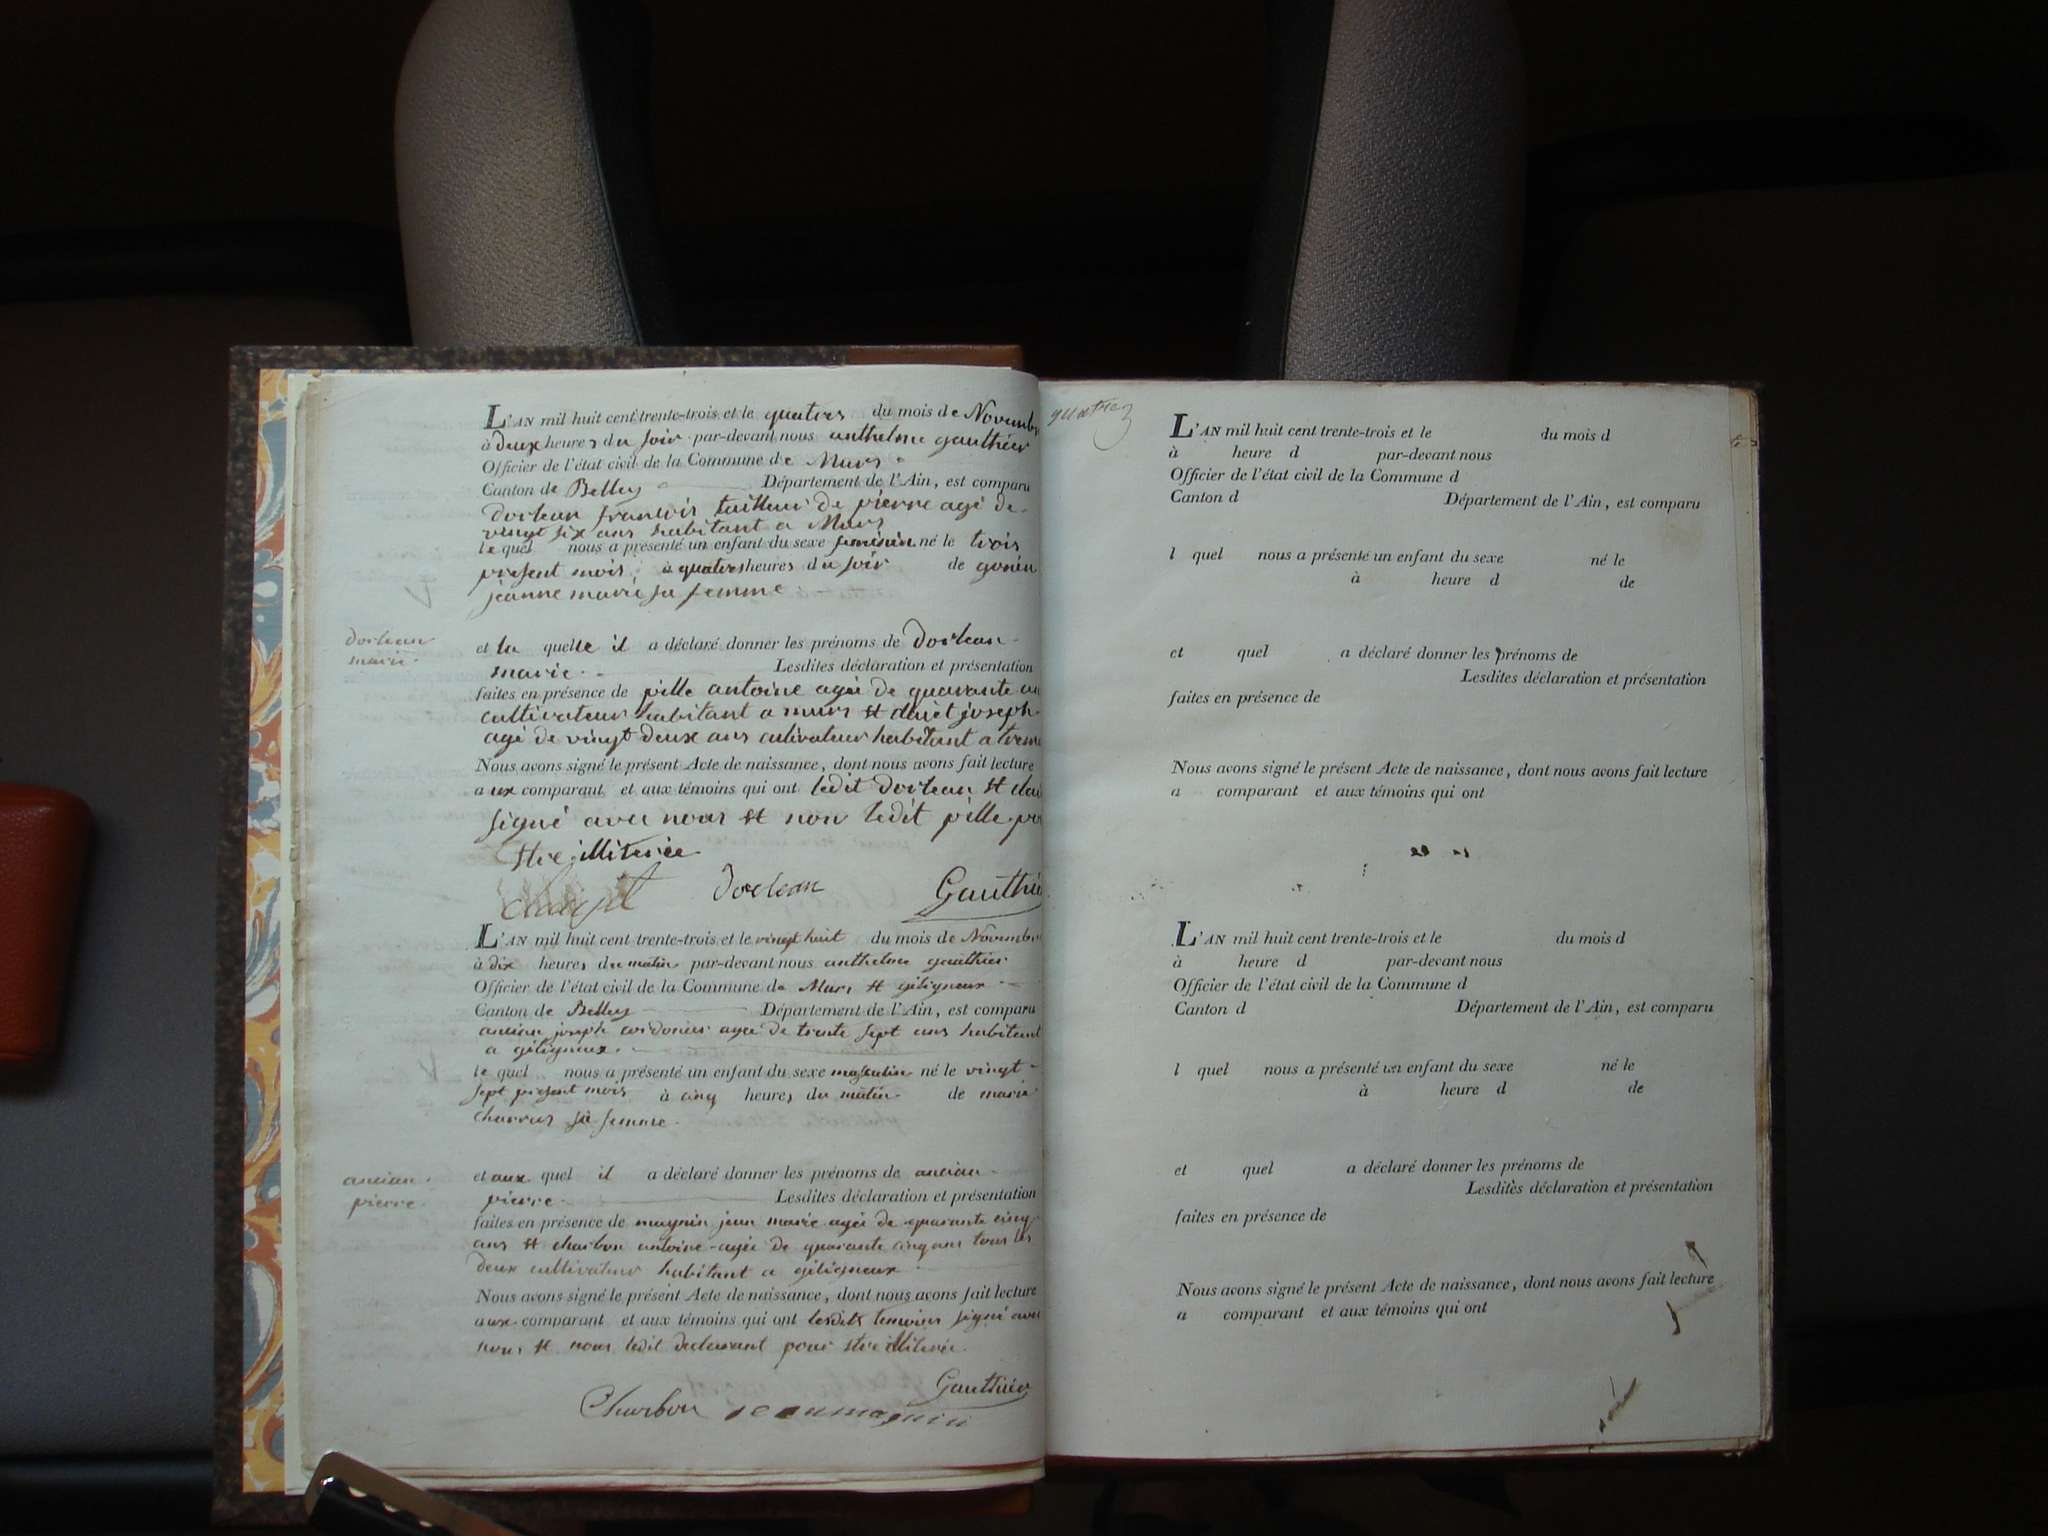 L'AN mil huit cent trente-trois et le quatres du mois de Novembr
à deux heures du soir par-devant nous anthelme gauthier
Officier de l'état civil de la Commune de Murs
Canton de Belley Département de l'Ain, est comparu
dorlean francois tailleur de pierre agé de
vingt six ans habitant a Murs
le quel nous a présenté un enfant du sexe feminin né le trois
present mois à quatres heures du soir de
jeanne marie sa femme
dorlean
marie
et la quelle il a déclaré donner les prénoms de dorlean
marie. Lesdites déclaration et présentation
faites en présence de pille antoine agée de quarante
cultivateur habitant a murs et joseph
agé de vingt deux ans cultivateur habitant a
Nous avons signé le présent Acte de naissance, dont nous avons fait lecture
aux comparant et aux témoins qui ont ledit dorlean et
signé avec nous et non ledit pille
etre illiterée
dorlean Gauthie
L'AN mil huit cent trente-trois et le vingt huit du mois de Novembr
à dix heures du matin par-devant nous anthelme gauthier
Officier de l'état civil de la Commune de Murs et géligneux
Canton de Belley Département de l'Ain, est comparu
ancian joseph cordonier agée de trente sept ans habitant
a géligneux.
le quel nous a présenté un enfant du sexe masculin né le vingt
sept present mois à cinq heures du matin de marie
charrus sa femme.
ancian.
pierre.
et aux quel il a déclaré donner les prénoms de ancian
pierre Lesdites déclaration et présentation
faites en présence de magnin jean marie agée de quarante cinq
ans et charbon antoine agée de quarante cinq ans tous les
deux cultivateur habitant a géligneux
Nous avons signé le présent Acte de naissance, dont nous avons fait lecture
aux comparant et aux témoins qui ont lesdits temoins signé avec
nous et nous ledit declarant pour etre illiterée.
Gauthier
Charbon jeanmagnin
L'AN mil huit cent trente-trois et le du mois d
à heure d par-devant nous
Officier de l'état civil de la Commune d
Canton d Département de l'Ain, est comparu
l quel nous a présenté un enfant du sexe né le
à heure d de
et quel a déclaré donner les prénoms de
Lesdites déclaration et présentation
faites en présence de
Nous avons signé le présent Acte de naissance, dont nous avons fait lecture
a comparant et aux témoins qui ont
L'AN mil huit cent trente-trois et le du mois d
à heure d par-devant nous
Officier de l'état civil de la Commune d
Canton d Département de l'Ain, est comparu
l quel nous a présenté un enfant du sexe né le
à heure d de
et quel a déclaré donner les prénoms de
Lesdites déclaration et présentation
faites en présence de
Nous avons signé le présent Acte de naissance, dont nous avons fait lecture
a comparant et aux témoins qui ont